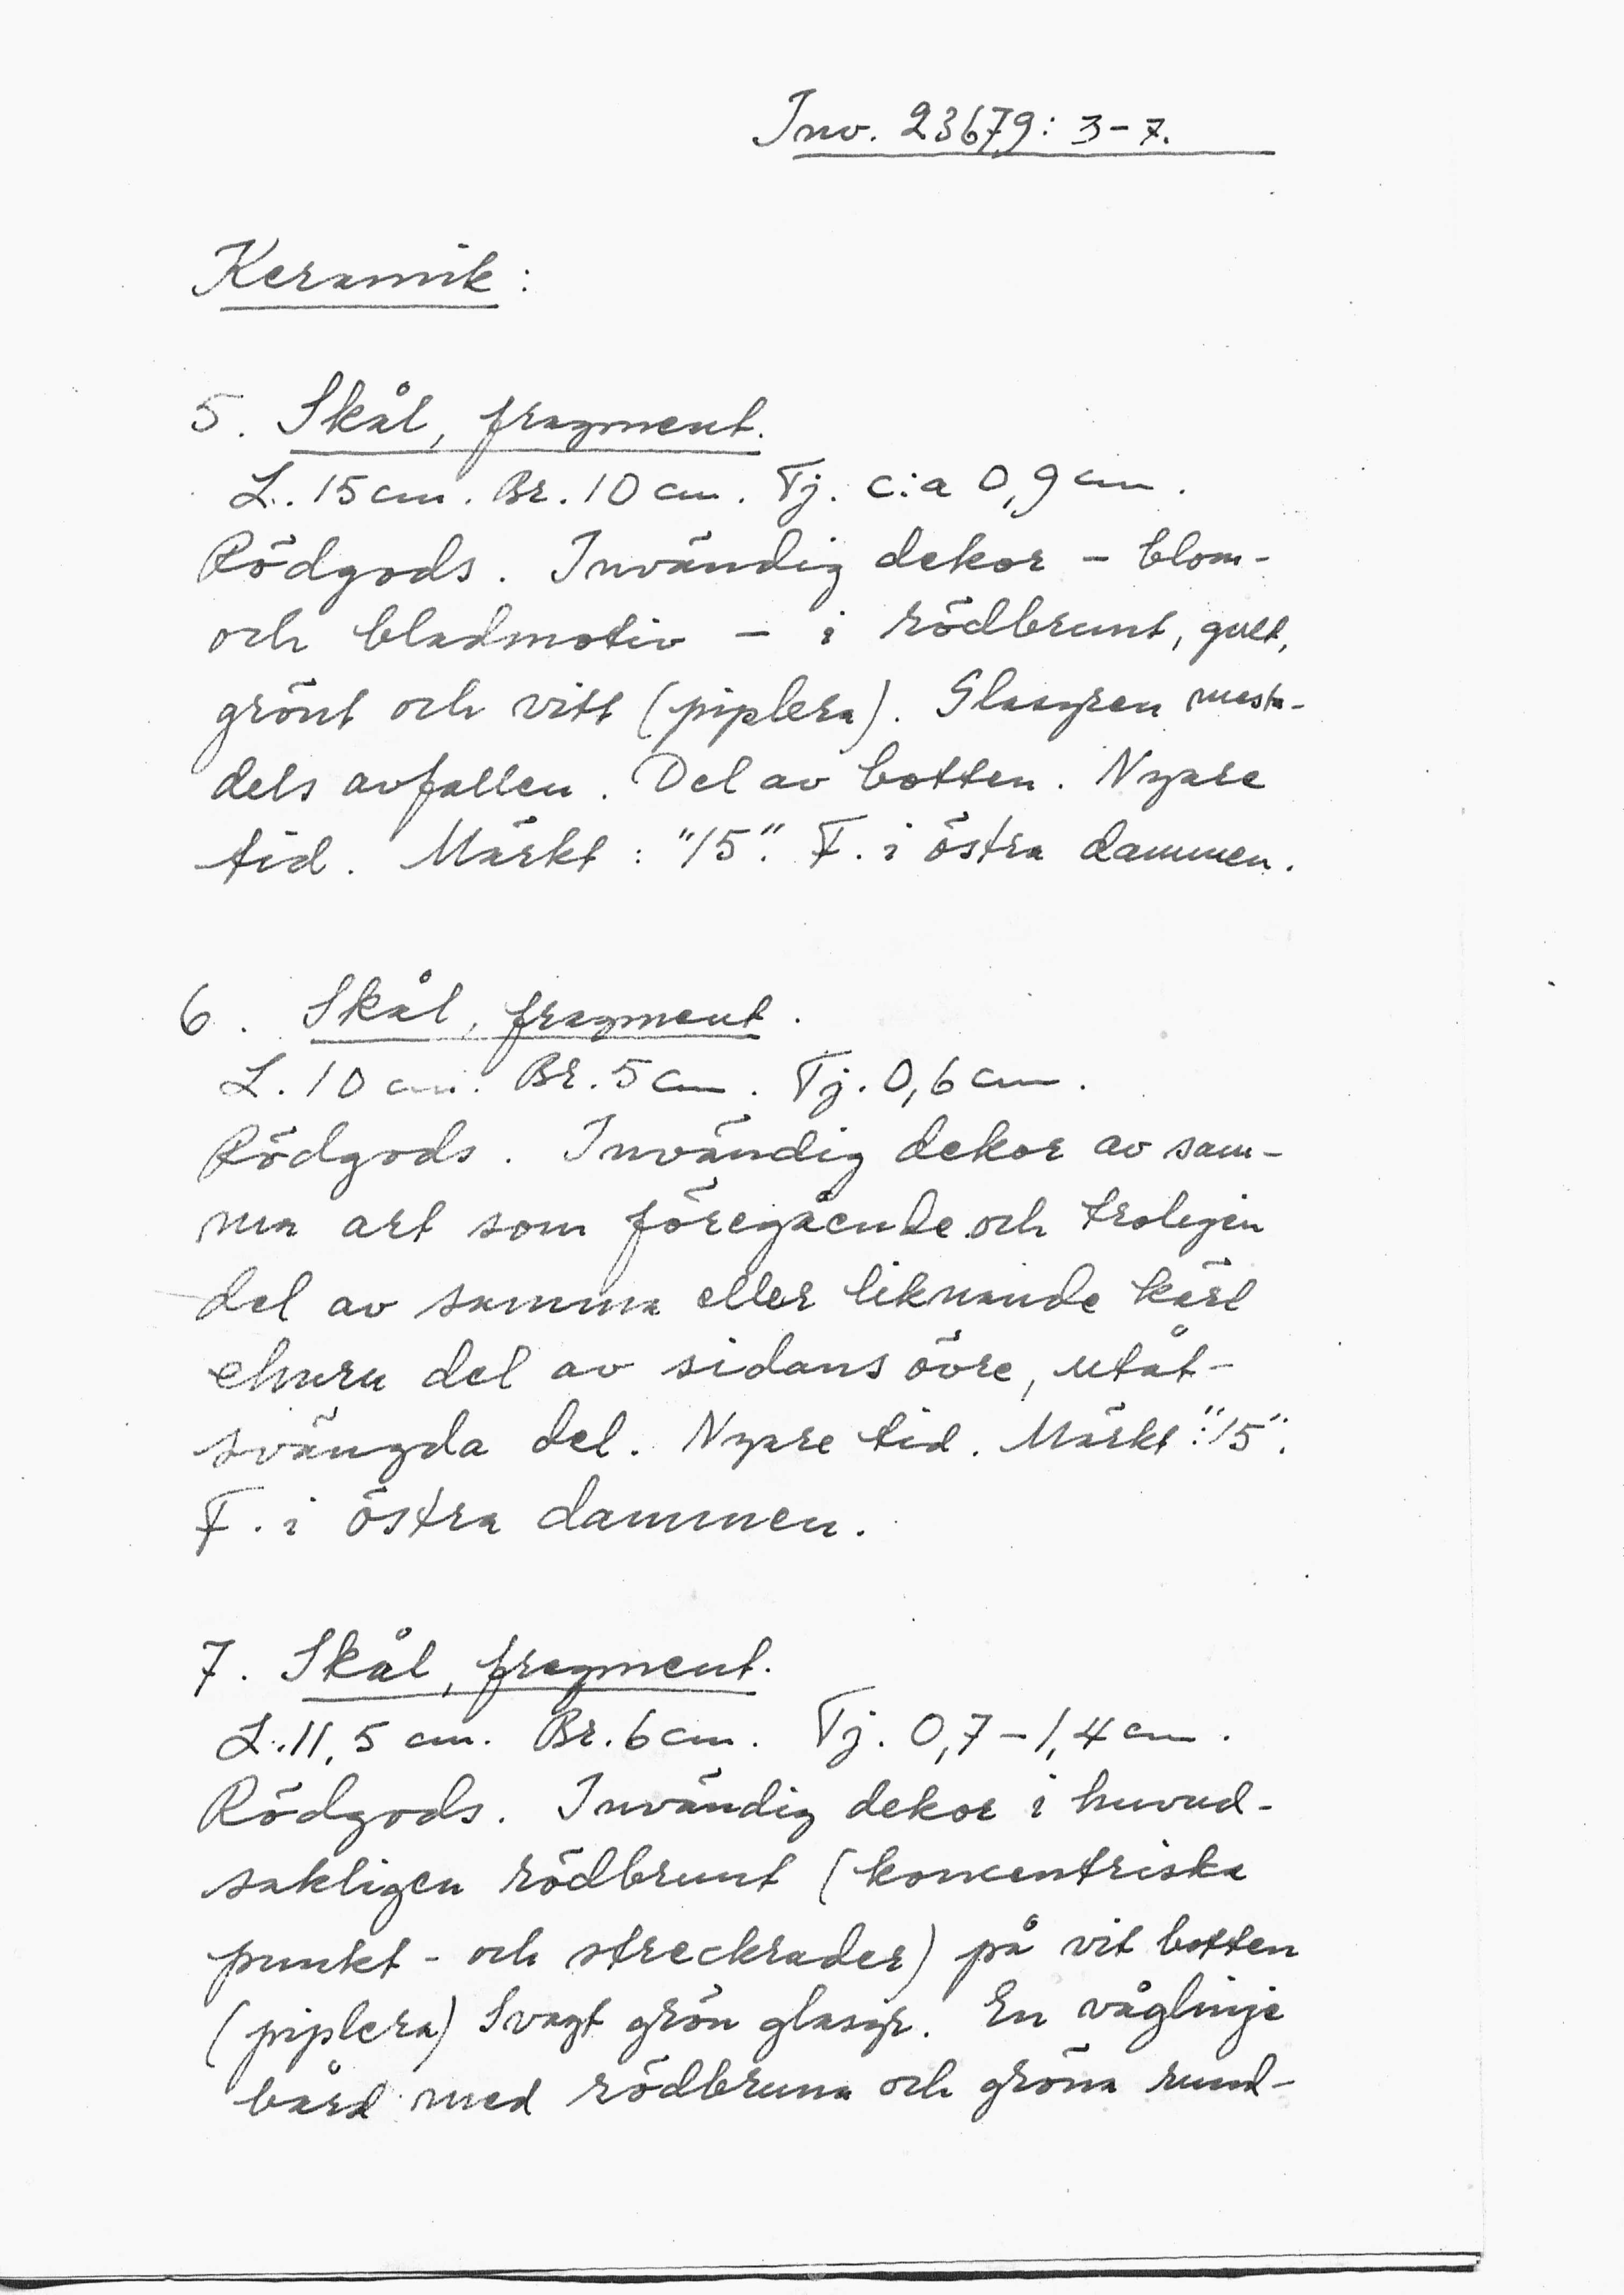 Inv. 23679: 3-7.
Keramik:
5. Skål, fragment.
L. 15 cm. Br. 10 cm. Tj. c:a 0,9 cm.
Rödgods. Invändig dekor - blom-
och bladmotiv - i rödbrunt, gult,
grönt och vitt (piplera). Glasyren mesta-
dels avfallen. Del av botten. Nyare
tid. Märkt: "15". F. i östra dammen.
6. Skål, fragment.
L. 10 cm. Br. 5 cm. Tj. 0,6 cm.
Rödgods. Invändig dekor av sam-
ma art som föregående och troligen
del av samma eller liknande kärl
ehuru del av sidans övre, utåt-
svängda del. Nyare tid. Märkt: "15".
F. i östra dammen.
7. Skål, fragment.
L. 11,5 cm. Br. 6 cm. Tj. 0,7-1,4 cm.
Rödgods. Invändig dekor i huvud-
sakligen rödbrunt (koncentriska
punkt- och streckrader) på vit botten
(piplera) Svagt grön glasyr. En våglinje
bård med rödbruna och gröna rund-